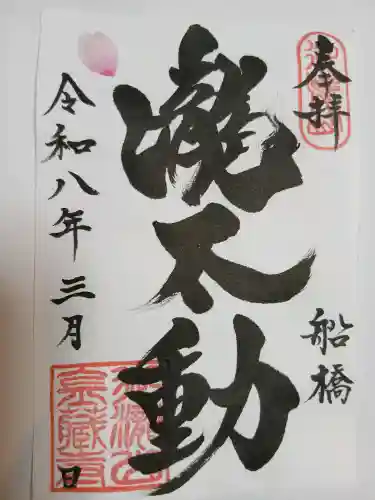 奉拝
船橋
滝不動
令和八年三月
日